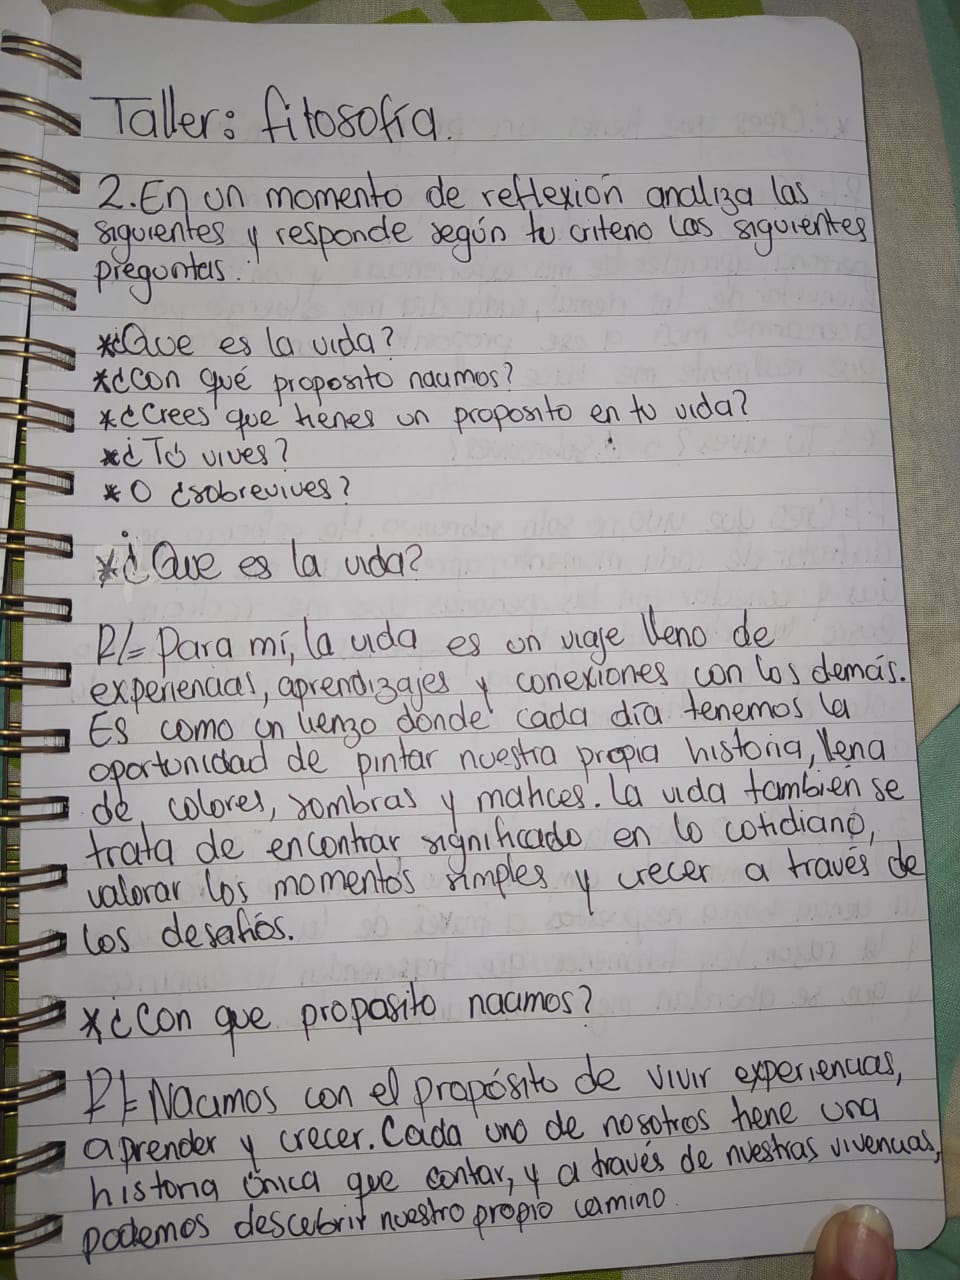 Taller: filosofía.
2. En un momento de reflexión analiza las
siguientes y responde según tu criterio las siguientes
preguntas.
*¿Que es la vida?
*¿Con qué proposito nacimos?
*¿Crees que tienes un proposito en tu vida?
*¿Tú vives?
*O ¿sobrevives?
*¿Que es la vida?
R/= Para mí, la vida es un viaje lleno de
experiencias, aprendizajes y conexiones con los demás.
Es como un lienzo donde cada día tenemos la
oportunidad de pintar nuestra propia historia, llena
de colores, sombras y matices. la vida también se
trata de encontrar significado en lo cotidiano,
valorar los momentos simples y crecer a través de
los desafíos.
*¿Con que proposito nacimos?
R/= Nacimos con el propósito de vivir experiencias,
aprender y crecer. Cada uno de nosotros tiene una
historia única que contar, y a través de nuestras vivencias,
podemos descubrir nuestro propio camino.